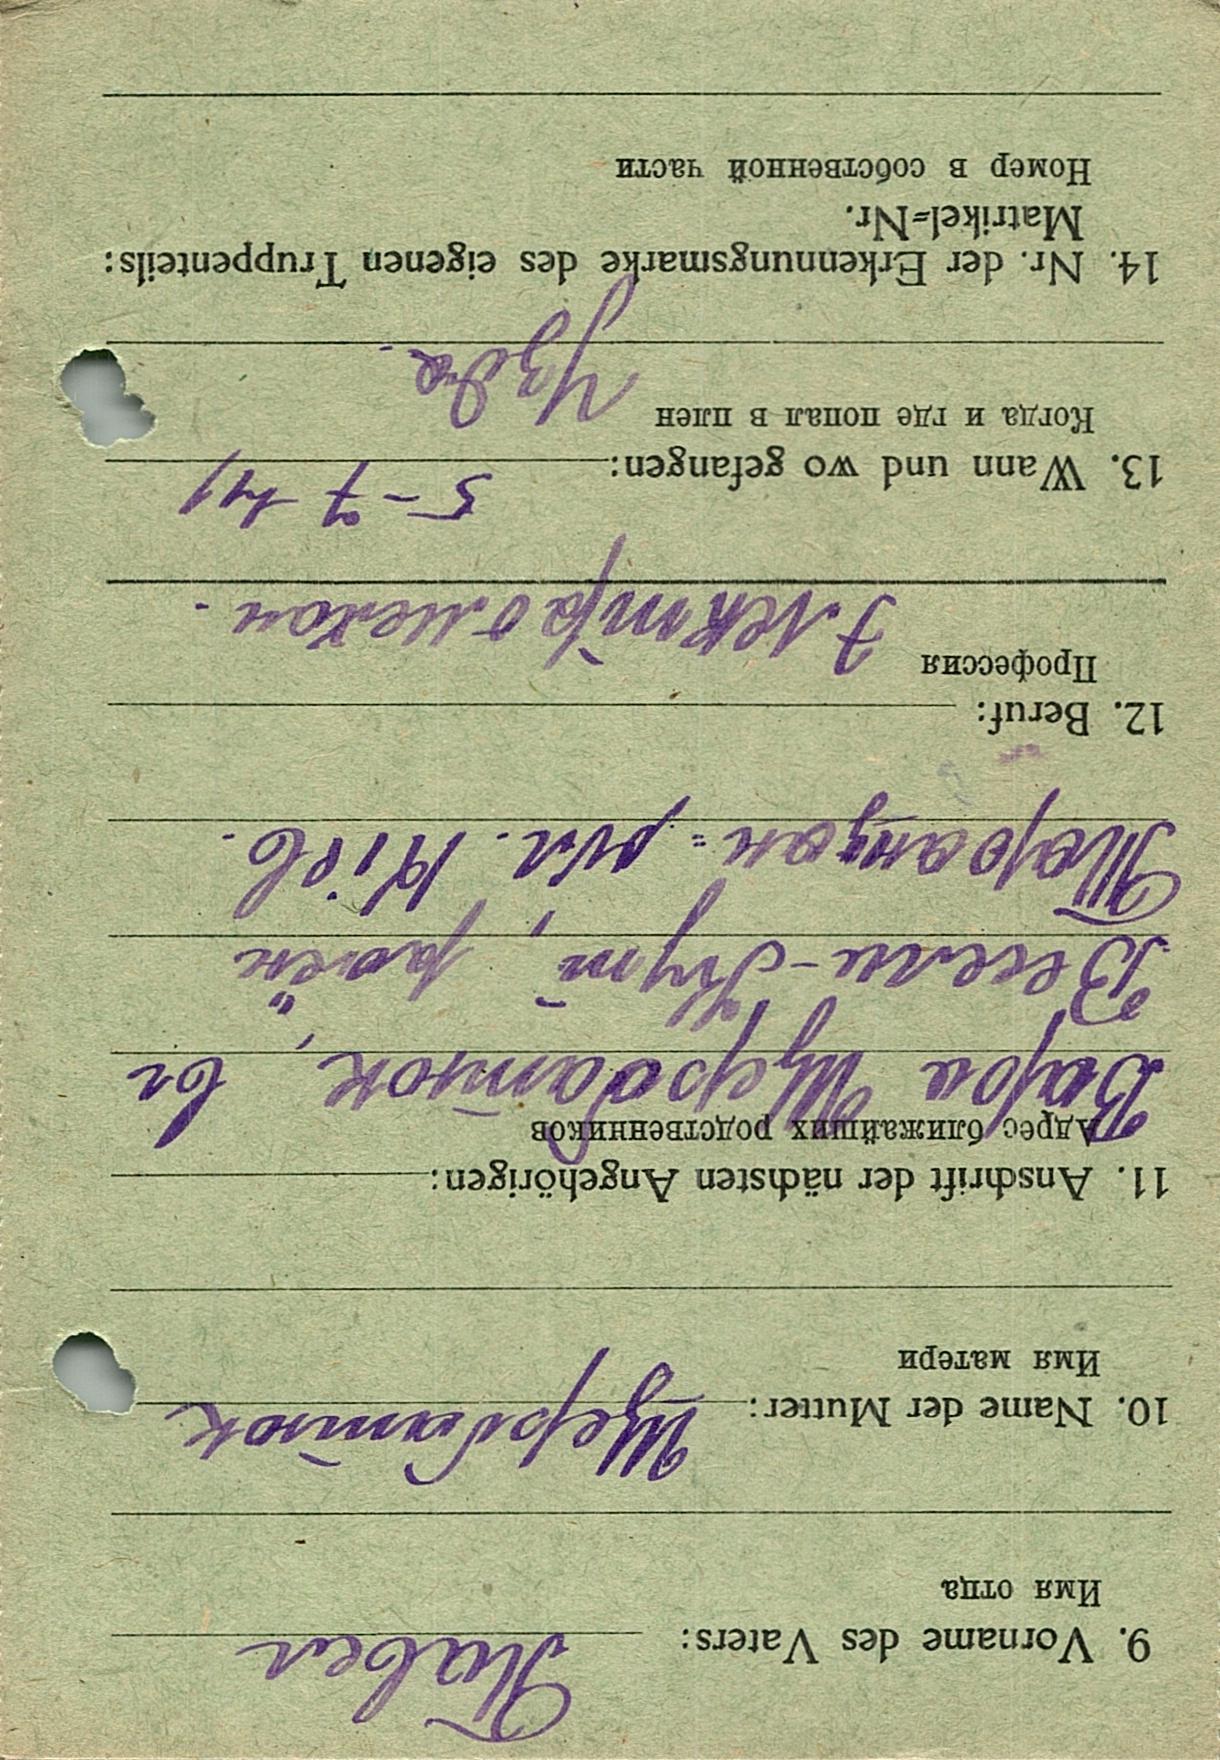 9. Vorname des Vaters: Павел
Имя отца
10. Name der Mutter: Щербатюк
Имя матери
11. Anschrift der nächsten Angehörigen:
Адрес ближайших родственников
Вара Щербатюк, вг
Весели-Кут", район
12. Beruf:
Профессия
Электромехан.
13. Wann und wo gefangen: 5-7 41
Когда и где попал в плен
Узда.
14. Nr. der Erkennungsmarke des eigenen Truppenteils:
Matrikel-Nr.
Номер в собственной части